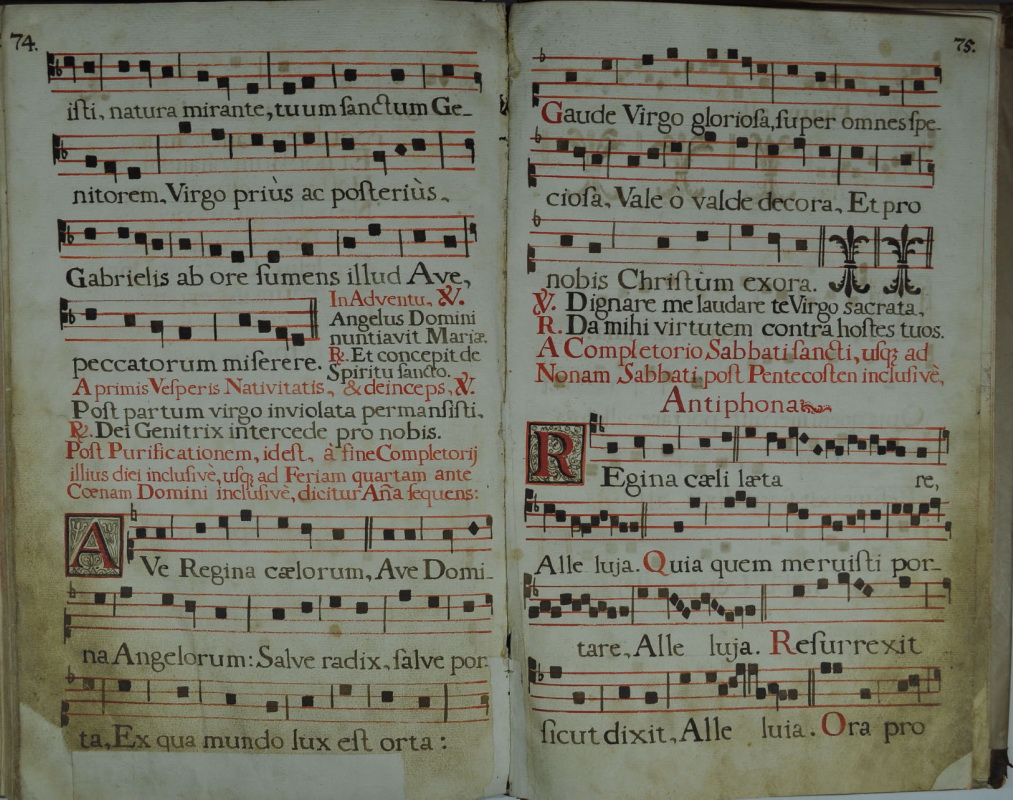 74.
isti, natura mirante, tuum sanctum Ge-
nitorem, Virgo priùs ac posteriùs,
Gabrielis ab ore sumens illud Ave,
peccatorum miserere.
In Adventu, ℣.
Angelus Domini
nuntiavit Mariæ.
℟. Et concepit de
Spiritu sancto.
A primis Vesperis Nativitatis, & deinceps, ℣.
Post partum virgo inviolata permansisti,
℟. Dei Genitrix intercede pro nobis.
Post Purificationem, idest, à fine Completorij
illius diei inclusivè, usq; ad Feriam quartam ante
Cœnam Domini inclusivè, dicitur Aña sequens:
AVe Regina cælorum, Ave Domi-
na Angelorum: Salve radix, salve por-
ta, Ex qua mundo lux est orta:
75.
Gaude Virgo gloriosa, super omnes spe-
ciosa, Vale ò valde decora, Et pro
nobis Christum exora.
℣. Dignare me laudare te Virgo sacrata,
R. Da mihi virtutem contra hostes tuos.
A Completorio Sabbati sancti, usq; ad
Nonam Sabbati post Pentecosten inclusivè,
Antiphona
REgina cæli læta re,
Alle luja. Quia quem meruisti por-
tare, Alle luja. Resurrexit
sicut dixit, Alle luia. Ora pro